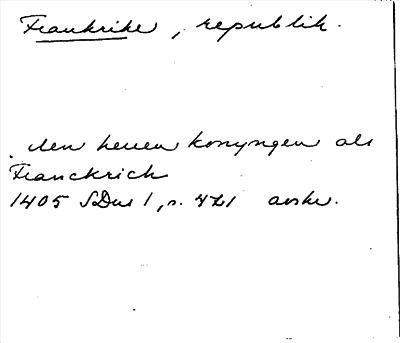 Frankrike, republik.
den heren konyngen als
Franckrich
1405 SDns 1, s. 471 avskr.